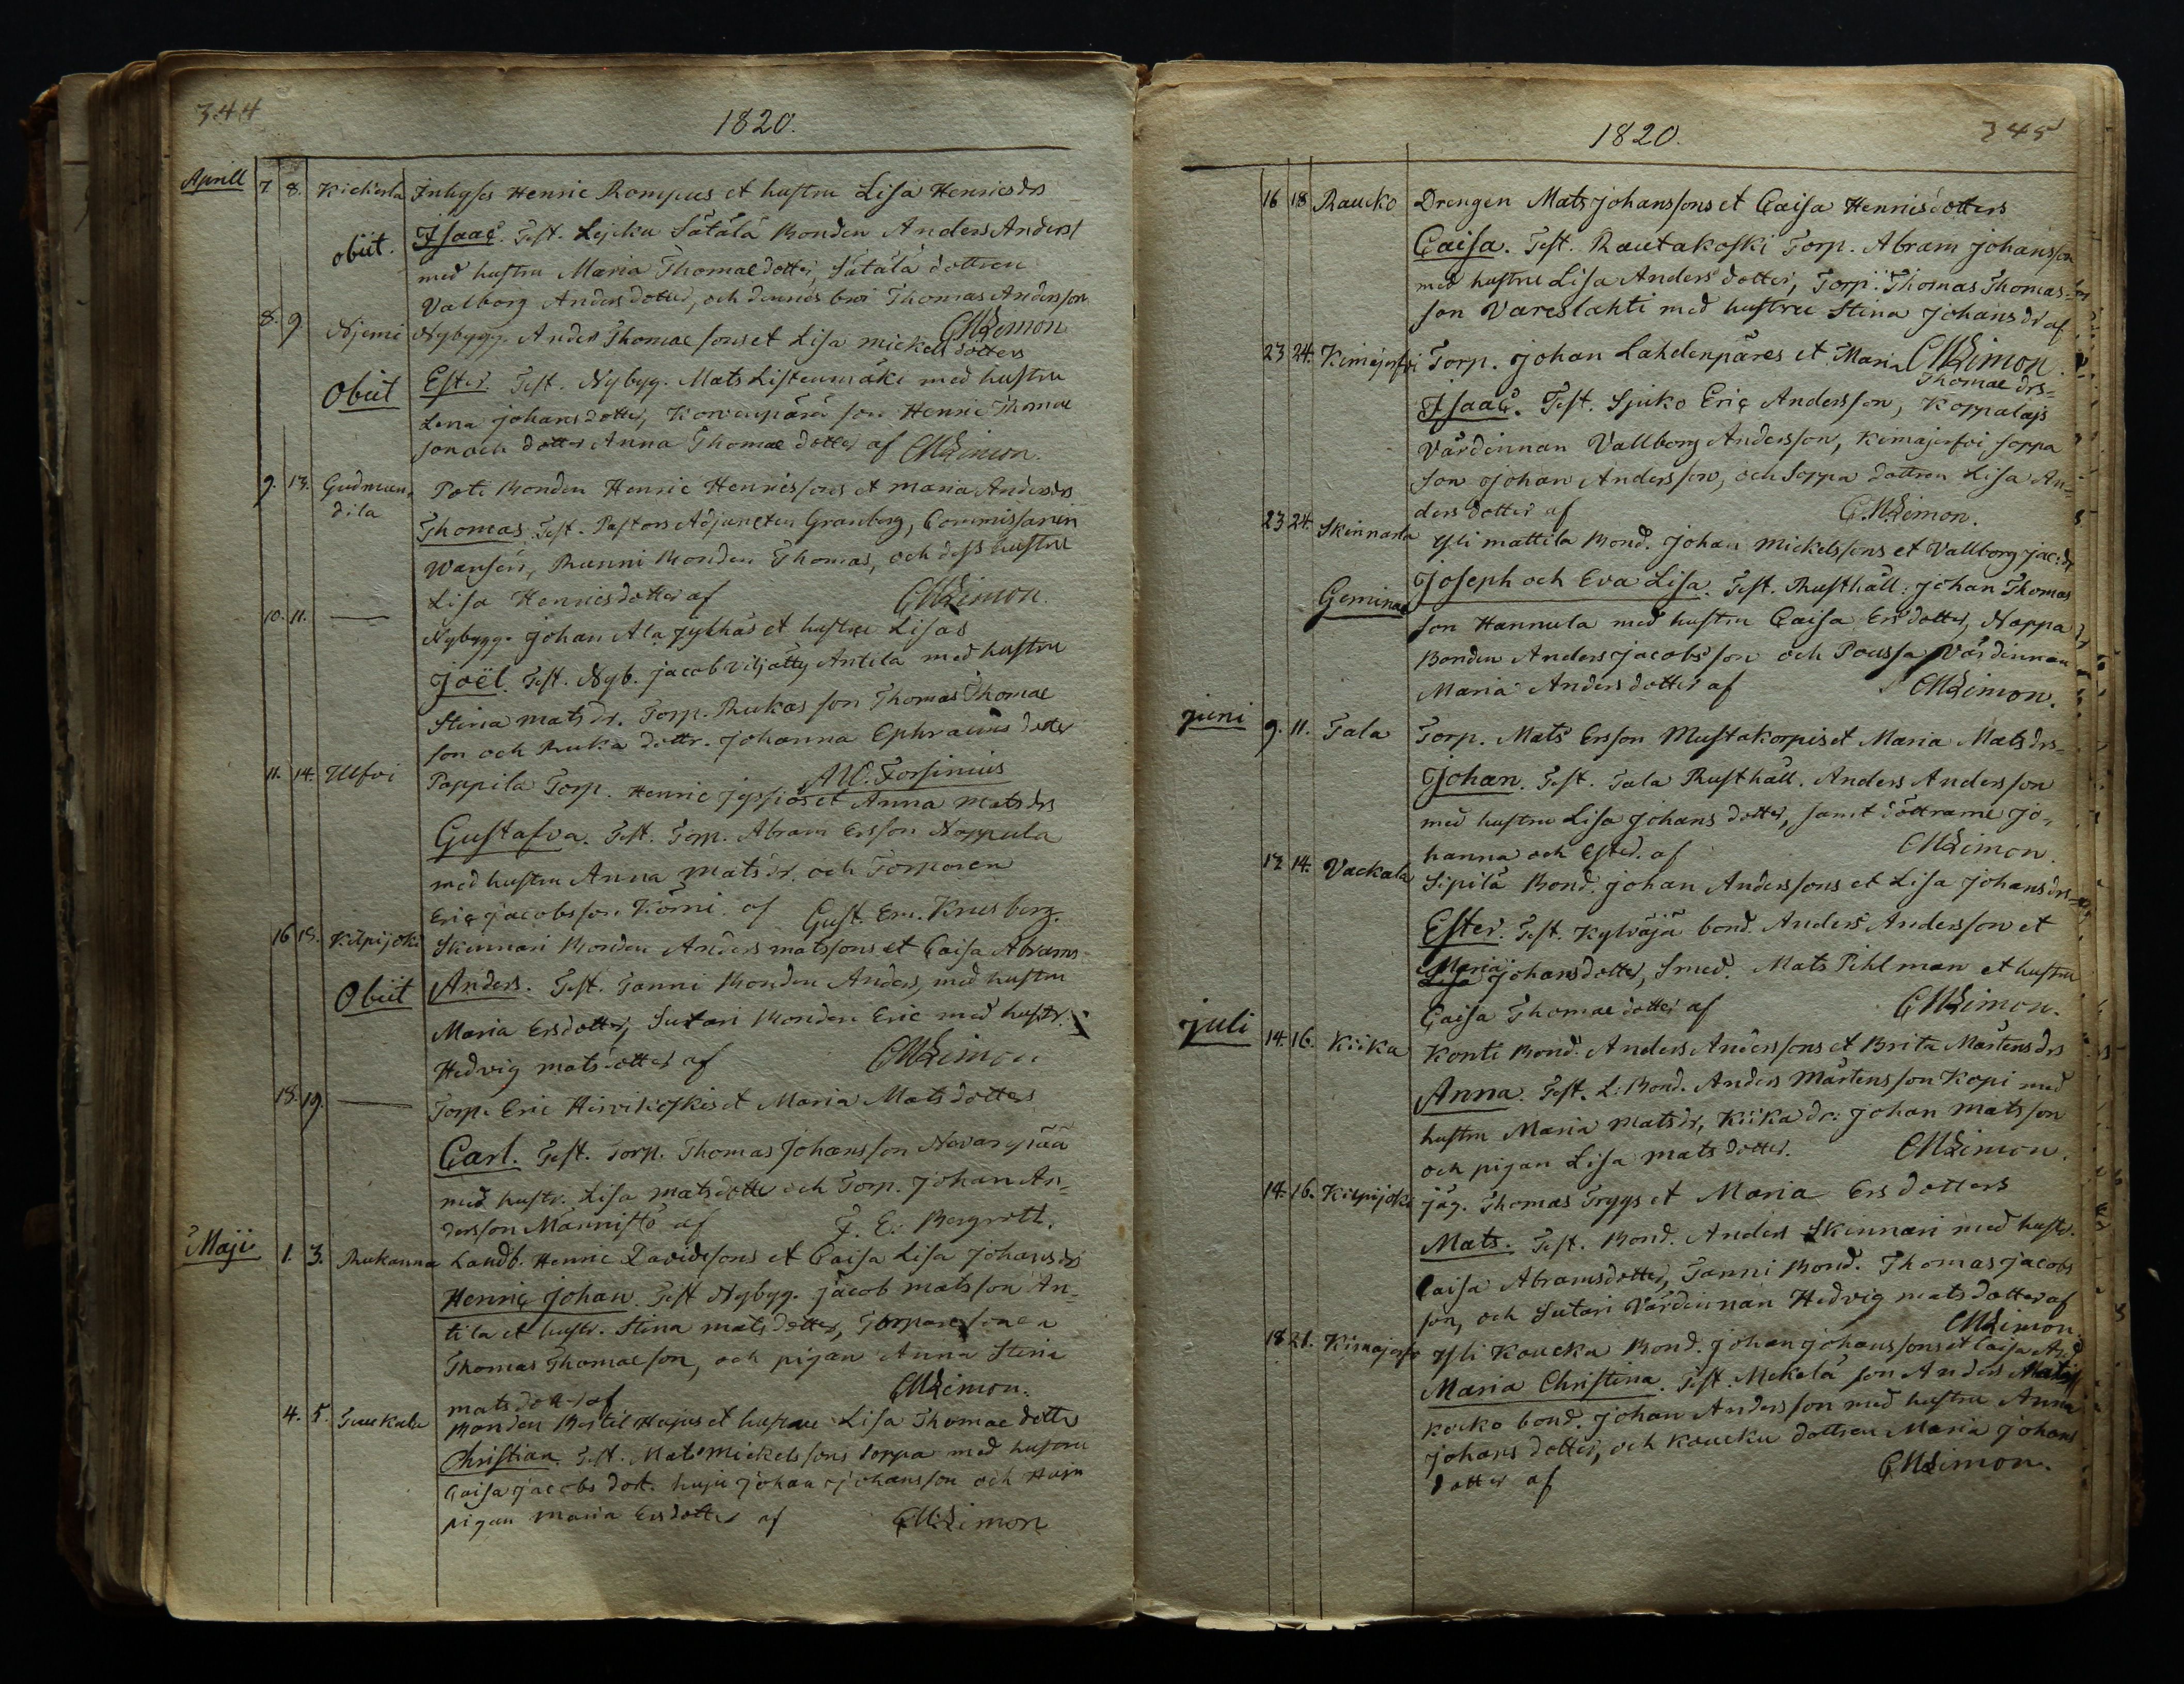 344
1820.
Aprill 7. 8. Kickerla Inhyses Henric Rompus et hustru Lisa Henricsdrs
obiit. Isaac. Test. Lejcku Sätälä Bonden Anders Anderss
med hustru Maria Thomaedotter, Sätälä dottren
Valborg Andersdotter, och dennes bror Thomas Andersson
CMLimon
8. 9. Njemi Nybygg. Anders Thomaesons et Lisa Mickels dotters
Obiit Ester. Test. Nybyg. Mats Listenmäki med hustru
Lena Johansdotter, Korvenpärä son Henric Thomae
son och dotter Anna Thomae dotter af CMLimon.
9. 13. Gudmun,
dila
Poti Bonden Henric Henricssons et Maria Andersdrs
Thomas. Test. Pastors Adjuncten Granberg, Commissarien
Wansén, Runni Bonden Thomas, och dess hustru
Lisa Henricsdotter af CMLimon.
10. 11. — Nybygg. Johan Ala Jylhäs et hustru Lisas
Joël. Test. Nyb. Jacob Viljatty Antila med hustru
Stina Mats dr. Torp. Rukas son Thomas Thomae
son och Ruka dottr. Johanna Ephraims dotter
A.W. Forsinius
11. 14. Ulfvi Pappila Torp. Henric Jyssiös et Anna Mats drs
Gustafva. Test. Torp. Abram Ersson Noppula
med hustru Anna Mats dr. och Torparen
Eric Jacobsson Körni. af Gust. Em. Krusberg.
16 18. Kilpijoki Skinnari Bonden Anders Matssons et Caisa Abrams
Obiit Anders. Test. Tanni Bonden Anders, med hustru
Maria Ersdotter, Sutari Bonden Eric med hustr.
Hedvig Matsdotter af CMLimon
18. 19. — Torp. Eric Hirvikoskis et Maria Mats dotters
Carl. Test. Torp. Thomas Johansson Nevanpää
med hustr. Lisa Matsdotter och Torp. Johan An=
dersson Männistö af F. E. Bergroth.
Maji 1. 3. Rukanna Landb. Henric Davidssons et Caisa Lisa Johansdrs
Henric Johan. Test Nybyg. Jacob Matsson An=
tila et hustr. Stina Mats dotter, Torparesonen
Thomas Thomaeson, och pigan Anna Stina
Matsdotr af CMLimon.
4. 5. Tuukala Bonden Bertil Hajus et hustru Lisa Thomae dotter
Christian Test. Mats Mickelssons Soppa med hustru
Caisa Jacobs dott. huju Johan Johansson och Huju
pigan Maria Ersdotter af CMLimon
345
1820.
16 18 Raucko Drengen Mats Johanssons et Caisa Henricsdotters
Caisa. Test. Rautakoski Torp. Abram Johansson
med hustru Lisa Anders dotter, Torp. Thomas Thomas=
son Vareslahti med hustru Stina Johans dr af
CMLimon.
23 24. Kimajerfvi Torp. Johan Lahdenpäres et Maria
Thomae drs=
Isaac. Test. Sjuko Eric Andersson, Koppalajs
Värdinnan Vallborg Andersson, Kimajerfvi Soppa
son Johan Andersson, och Soppa dottren Lisa An=
dersdotter af C.M.Limon.
23 24. Skinnarla Yli mattila Bond. Johan Mickelssons et Vallborg Jac: dr
Geminae Joseph och Eva Lisa. Test. Rusthåll: Johan Thomas
son Hannula med hustru Caisa Ersdotter, Noppa
Bonden Anders Jacobsson och Poussa Värdinnan
Maria Andersdotter af CMLimon.
Juni 9. 11. Tala Torp. Mats Ersson Mustakorpis et Maria Mats drs=
Johan. Test. Tala Rusthåll. Anders Andersson
med hustru Lisa Johans dotter, samt döttrarne Jo,
hanna och Ester. af CMLimon.
14. Vackala Sipilä Bond. Johan Anderssons et Lisa Johansdrs=
Ester. Test. Kylväjä bond. Anders Andersson et
Maria
Lisa Johansdotter, Smed. Mats Pihlman et hustru
Caisa Thomae dotter af CMLimon.
Juli 14. 16. Kiika Konti Bond. Anders Anderssons et Brita Mårtens drs
Anna. Test. L: Bond. Anders Mårtensson Kopi med
hustru Maria Mats dr, Kiika dr: Johan Matsson
och pigan Lisa Matsdotter. CMLimon.
14. 16. Kilpijoki Jäg. Thomas Tryggs et Maria Ers dotters
Mats. Test. Bond. Anders Skinnari med hustr.
Caisa Abramsdotter, Tanni Bond. Thomas Jacobs
son, och Sutari Värdinnan Hedvig Matsdotter af
CMLimon.
18 21. Kimajerfvi Yli Koucku Bond. Johan Johanssons et Caisa And
Maria Christina. Test. Mekelä son Anders Mats
kocko bond. Johan Andersson med hustru Anna
Johans dotter, och Koucku dottren Maria Johans
dotter af CMLimon.